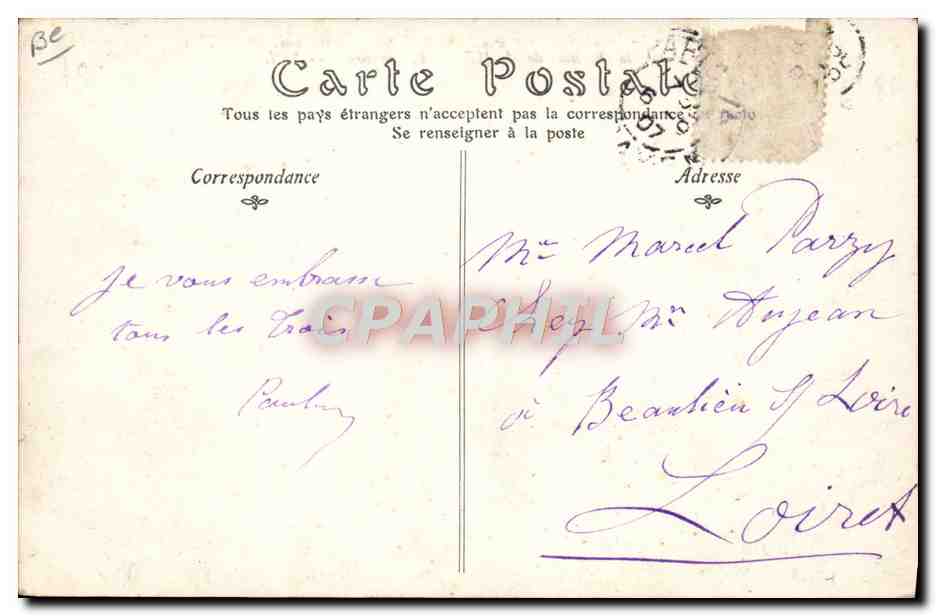 Be
Carte Postale
Tous les pays étrangers n'acceptent pas la correspondance au recto
Se renseigner à la poste
Correspondance
Adresse
je vous embrasse
tous les trois
Me Marcel Parzy
Chez Mr Aujean
à Beaulieu s/ Loire
Loiret
CPAPHIL